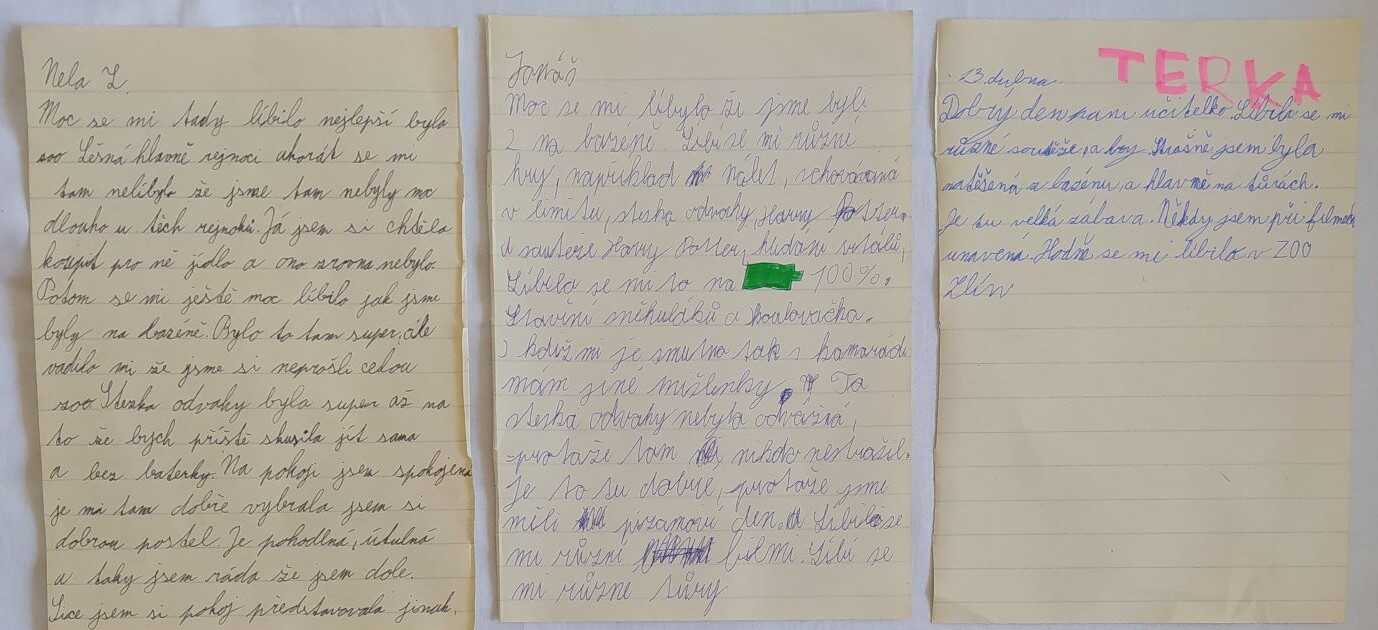 Nela L.
Moc se mi tady líbilo nejlepší bylo
zoo Lěšná hlavně rejnoci akorát se mi
tam nelíbylo že jsme tam nebyly moc
dlouho u těch rejnoků. Já jsem si chtěla
koupit pro ně jídlo a ono zrovna nebylo.
Potom se mi ještě moc líbilo jak jsme
byly na bazéně. Bylo to tam super, ale
vadilo mi že jsme si neprošli celou
zoo. Stezka odvahy byla super až na
to že bych příště skusila jít sama
a bez baterky. Na pokoji jsem spokojená
je mi tam dobře vybrala jsem si
dobrou postel. Je pohodlná, útulná
a taky jsem ráda že jsem dole.
Sice jsem si pokoj představovala jinak.
Jonáš
Moc se mi líbylo že jsme byli
2 na bazéně. Líbí se mi různé
hry, například nálet, schovávaná
v limitu, steska odvahy, Harry Potter.
Harry Potter, hlídání
Líbilo se mi to na 100%.
Stavění sněhuláků a koulovačka.
když mi je smutno tak s kamarády
mám jiné mišlenky. Ta
steska odvahy nebyla odvážná,
protaže tam nikdo nestrašil.
Je to tu dobrje, protaže jsme
měli pyžamoví den. Líbilo se
mi různí filmi. Líbí se
mi různe túry
TERKA
13. dubna.
Dobrý den paní učitelko. Líbila se mi
různé soutěže, a hry. Strašně jsem byla
natěšená z bazénu, a hlavně na túrách.
Je tu velká zábava. Někdy jsem při filmech
unavená. Hodně se mi líbilo v ZOO
Zlín